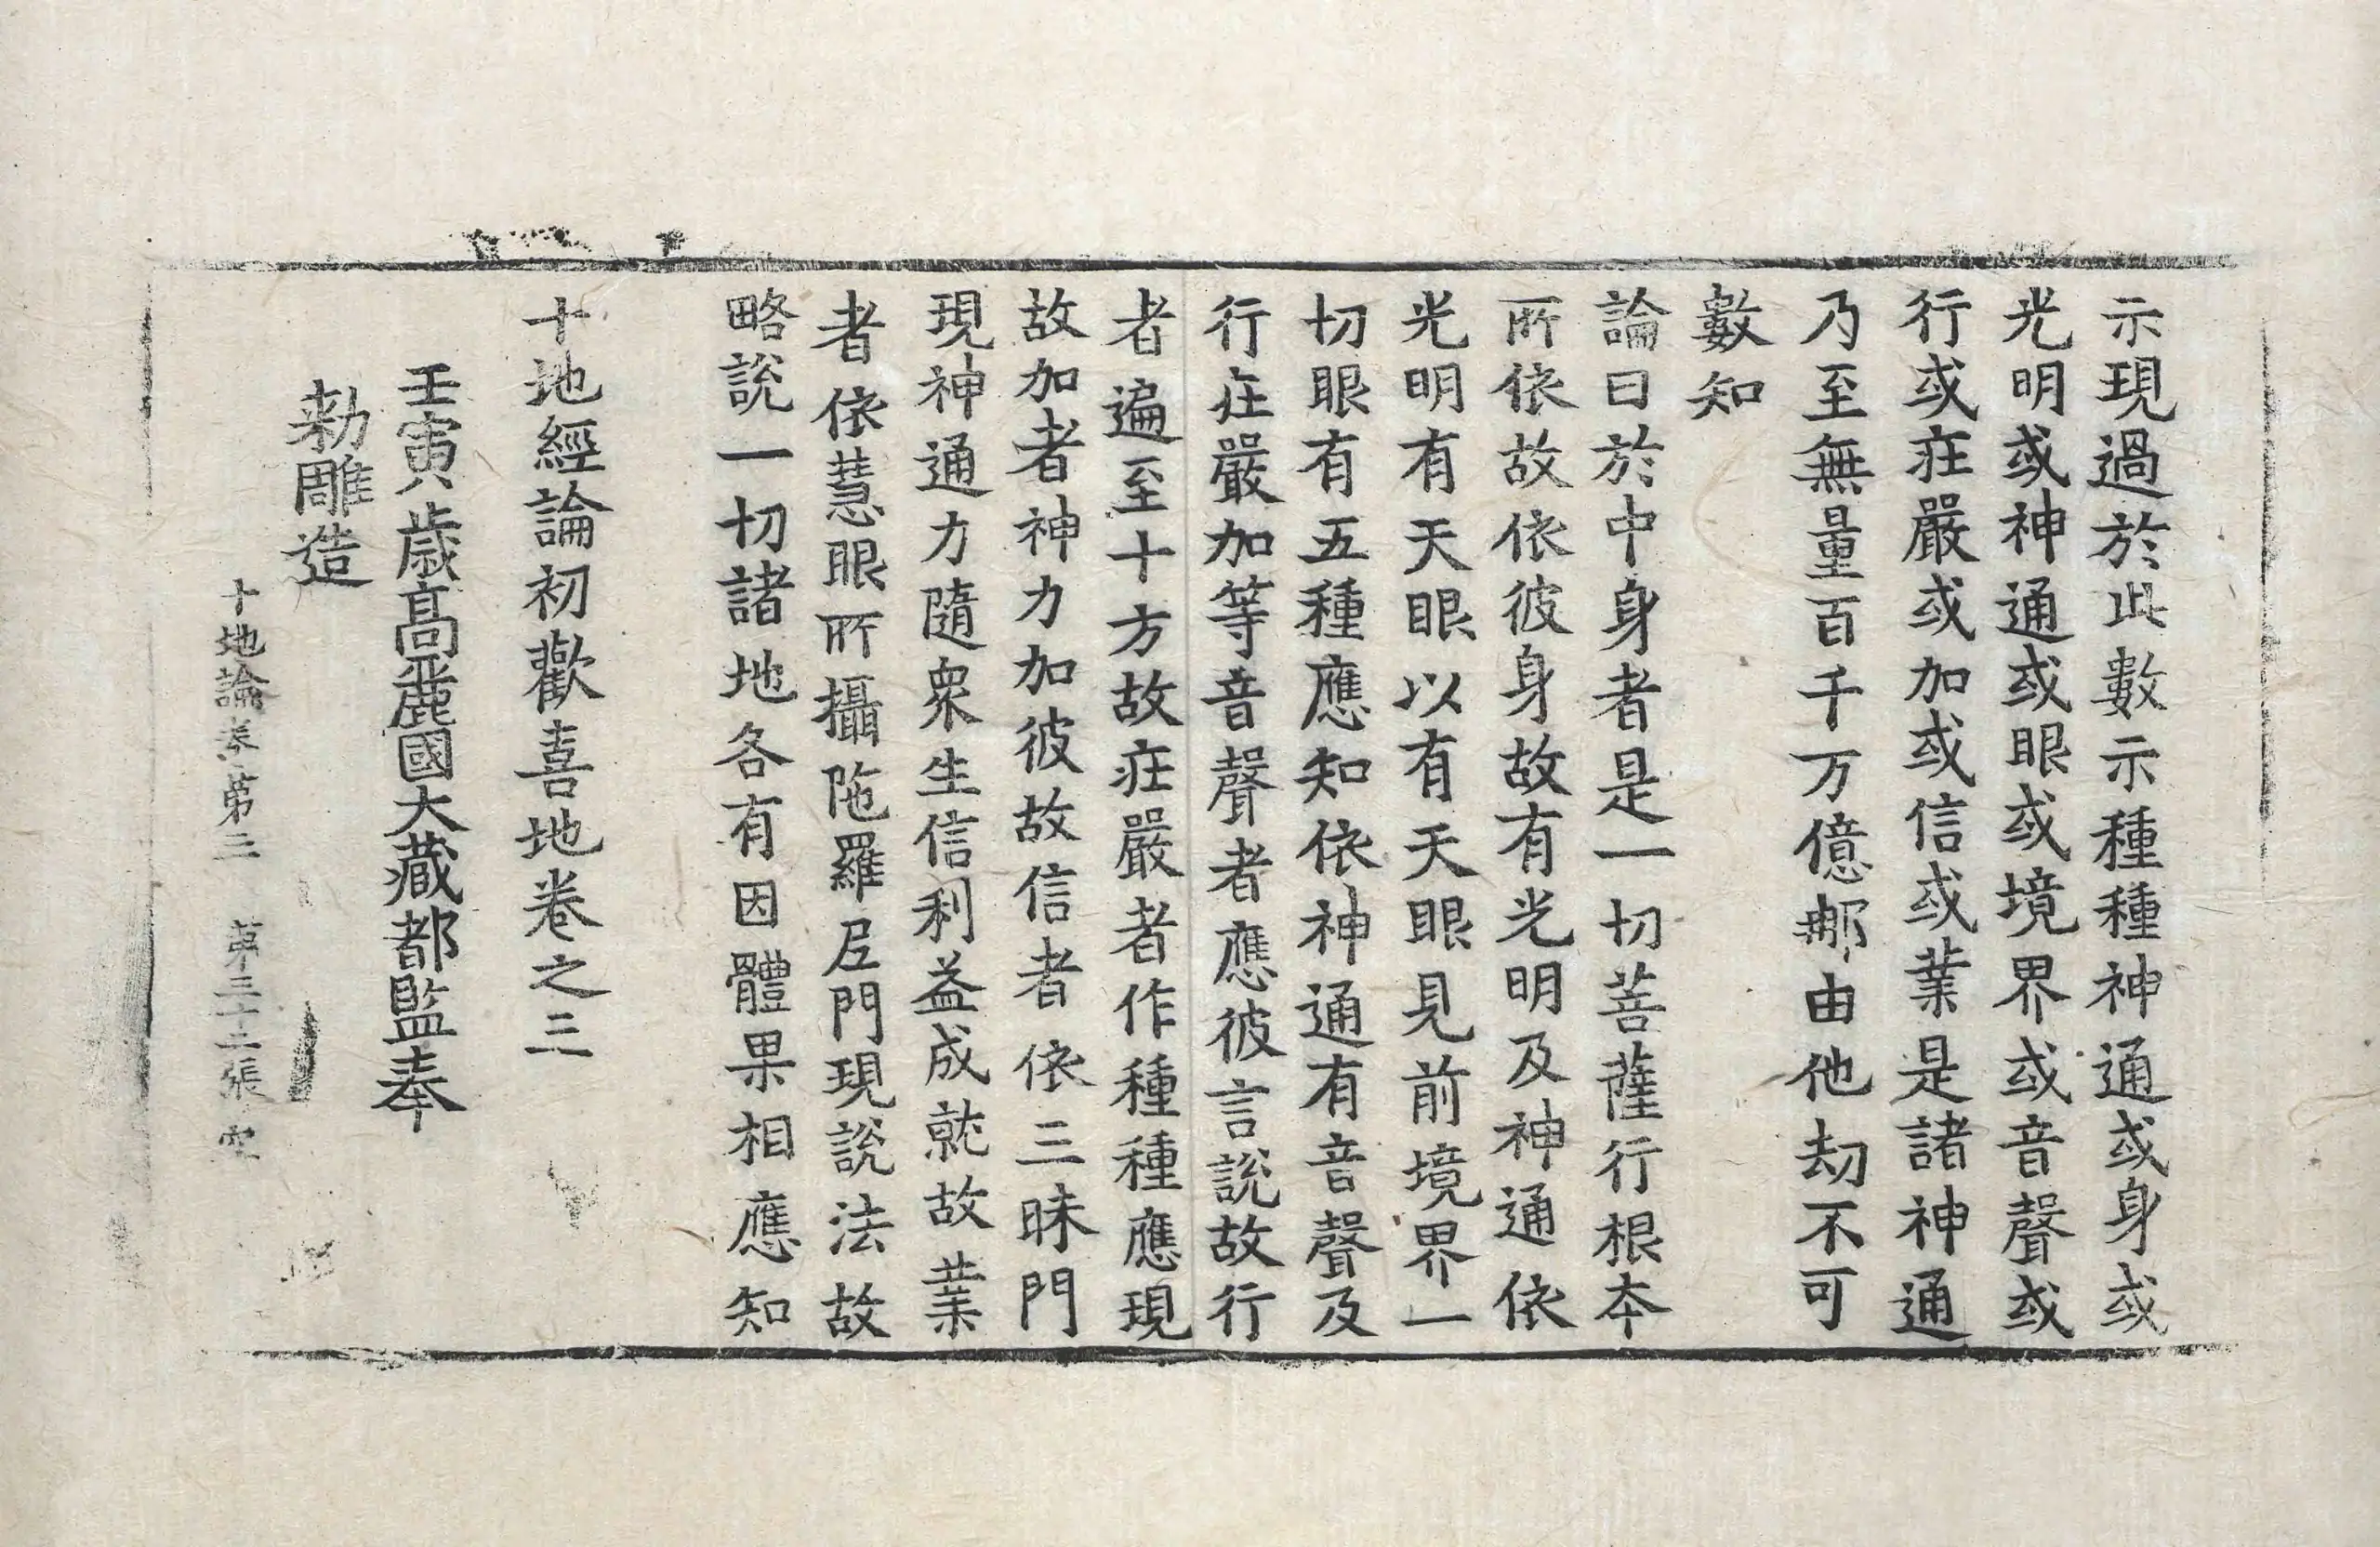 示現過於此數示種種神通或身或
光明或神通或眼或境界或音聲或
行或莊嚴或加或信或業是諸神通
乃至無量百千万億那由他劫不可
數知
論曰於中身者是一切菩薩行根本
所依故依彼身故有光明及神通依
光明有天眼以有天眼見前境界一
切眼有五種應知依神通有音聲及
行莊嚴加等音聲者應彼言說故行
者遍至十方故莊嚴者作種種應現
故加者神力加彼故信者依三昧門
現神通力隨衆生信利益成就故業
者依慧眼所攝陁羅尼門現說法故
略說一切諸地各有因體果相應知
十地經論初歡喜地卷之三
壬寅歲高麗國大藏都監奉
勅雕造
十地論卷第三 第三十二張 空